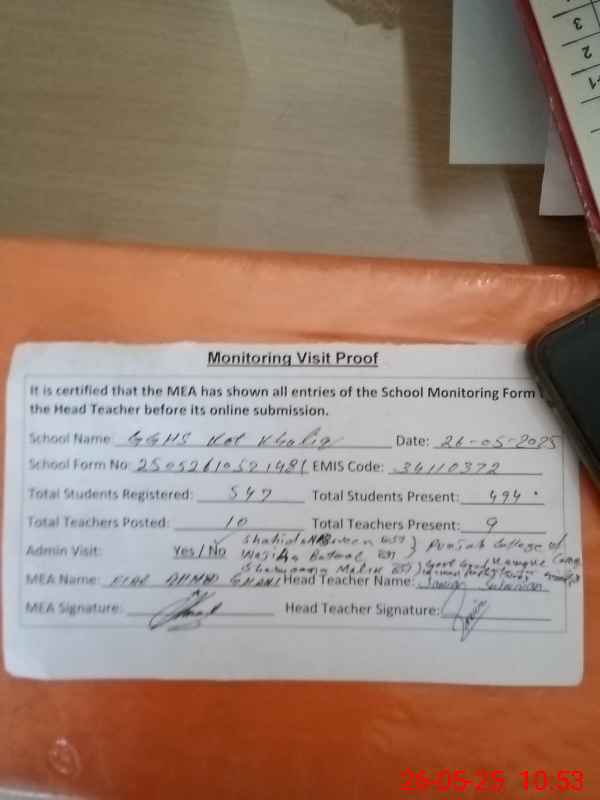 3
2
1
Monitoring Visit Proof
It is certified that the MEA has shown all entries of the School Monitoring Form
the Head Teacher before its online submission.
School Name: GGHS Kot Khaliq Date: 26-05-2025
School Form No: EMIS Code: 34110372
Total Students Registered: 547 Total Students Present: 494
Total Teachers Posted: 10 Total Teachers Present: 9
Shahida EST } Punjab College of
Admin Visit: Yes / No Batool EST
Malik EST
MEA Name: AHMED GHANI Head Teacher Name:
MEA Signature: Head Teacher Signature:
26-05-25 10:53